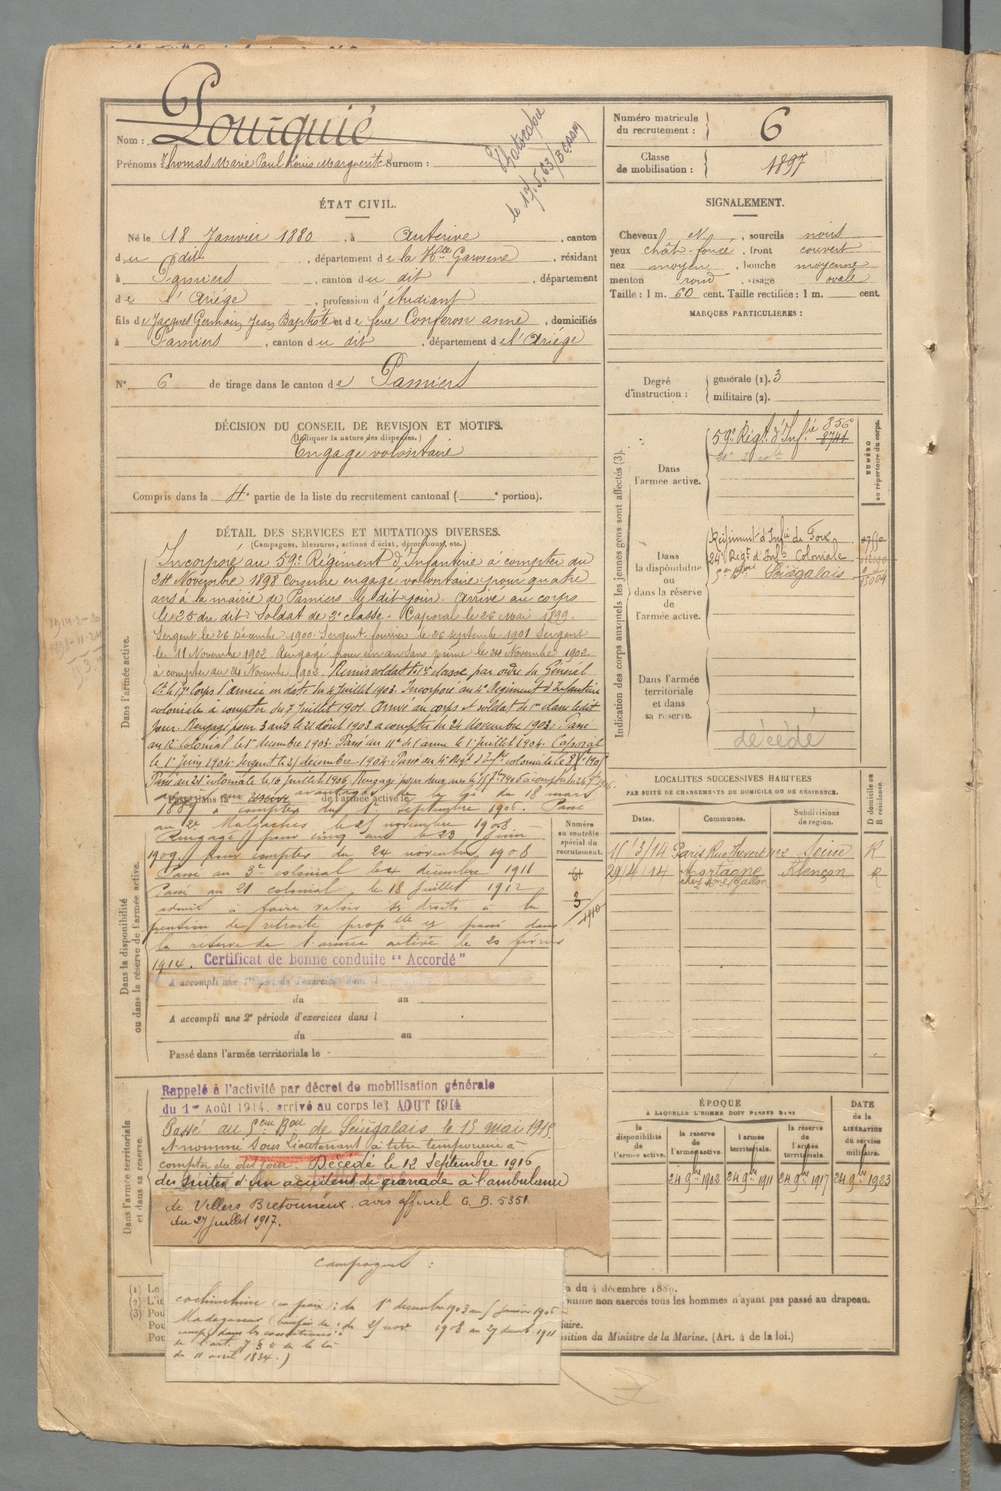 Pourquié
Nom :
Prénoms Thomas Marie Paul Louis Marguerite Surnom :
Photocopie
le 17.5.63
Numéro matricule
du recrutement :
6
Classe
de mobilisation :
1897
ÉTAT CIVIL.
Né le 18 Janvier 1880, à Auterive, canton
du dit, département de la Hte Garonne, résidant
à Pamiers, canton du dit, département
de l'Ariège, profession d'étudiant
fils de Jacques Germain Jean Baptiste et de feue Conferon anne, domiciliés
à Pamiers, canton du dit, département de l'Ariège
N° 6 de tirage dans le canton de Pamiers
SIGNALEMENT.
Cheveux N, sourcils noirs
yeux chât. foncé, front couvert
nez moyen, bouche moyenne
menton rond, visage ovale
Taille : 1 m. 60 cent. Taille rectifiée : 1 m. cent.
MARQUES PARTICULIÈRES :
Degré
d'instruction :
générale (1). 3
militaire (2).
DÉCISION DU CONSEIL DE REVISION ET MOTIFS.
(Indiquer la nature des dispenses.)
Engagé volontaire
Compris dans la 4e partie de la liste du recrutement cantonal ( e portion).
DÉTAIL DES SERVICES ET MUTATIONS DIVERSES.
(Campagnes, blessures, actions d'éclat, décorations, etc.)
Dans l'armée active.
Incorporé au 59e Régiment d'Infanterie à compter du
24 Novembre 1898 Comme engagé volontaire pour quatre
ans à la mairie de Pamiers le dit jour. Arrivé au corps
le 25 du dit. Soldat de 2e classe. Caporal le 26 Mai 1899.
Sergent le 26 Décembre 1900. Sergent fourrier le 26 septembre 1901 Sergent
le 11 Novembre 1902. Rengagé pour un an sans prime le 24 Novembre 1902.
à compter du 24 Novembre 1902. Remis soldat de 1e classe par ordre du Général
Ct le 17e Corps d'armée en date du 4 juillet 1903. Incorporé au 4e Régiment d'Infanterie
coloniale à compter du 7 juillet 1903. Arrivé au corps et soldat de 1re classe le dit
jour. Rengagé pour 3 ans le 21 août 1903 à compter du 24 Novembre 1903. Passé
au 12e colonial le 1er décembre 1903. Passé au 11e de l'arme le 1er juillet 1904. Caporal
le 1er Juin 1904. Sergent le 21 décembre 1904. Passé au 4e Régt d'Infie coloniale le
Passé au 21e colonial le 16 juillet 1906. Rengagé pour deux ans le
Passé dans la réserve de l'armée active le
1889 à compter du 1er Septembre 1906. Passé
au 2e Malgaches le 25 novembre 1908
Rengagé pour cinq ans le 23 Juin
1909 pour compter du 24 novembre 1908
Passé au 3e colonial le 4 décembre 1911
Passé au 21 colonial le 18 Juillet 1912
admis à faire valoir ses droits à la
pension de retraite propelle et passé dans
la réserve de l'armée active le 20 février
1914. Certificat de bonne conduite "Accordé"
Dans la disponibilité
ou dans la réserve de l'armée active.
A accompli une 1re période d'exercices dans l
du au
A accompli une 2e période d'exercices dans l
du au
Passé dans l'armée territoriale le
Numéro
au contrôle
spécial du
recrutement.
61
3
1910
Dans l'armée territoriale
et dans sa réserve.
Rappelé à l'activité par décret de mobilisation générale
du 1er Août 1914. arrivé au corps le 3 AOUT 1914
Passé au 5eme Bon de Sénégalais le 15 mai 1915
Nommé Sous Lieutenant à titre temporaire à
compter du dit jour. Décédé le 12 Septembre 1916
des suites d'un accident de grenade à l'ambulance
de Villers Bretonneux. avis officiel G. B. 5351
du 27 juillet 1917.
Campagnes :
Cochinchine (en paix) : du 1er décembre 1903 au 5 janvier 1905
Madagascar du 25 nov 1908 au 27 décemb 1911
du 11 avril 1834.)
Indication des corps auxquels les jeunes gens sont affectés (3).
NUMÉRO
au répertoire du corps.
Dans
l'armée active.
59e Régt d'Infie 356
Dans
la disponibilité
ou
dans la réserve
de
l'armée active.
Régiment d'Infie de Foix
24e Régt d'Infie Coloniale
5eme Bon Sénégalais
Dans l'armée
territoriale
et dans
sa réserve.
décédé
LOCALITÉS SUCCESSIVES HABITÉES
PAR SUITE DE CHANGEMENTS DE DOMICILE OU DE RÉSIDENCE.
Dates. Communes. Subdivisions
de région.
D domicile ou
R résidence.
11/3/14 Paris Seine R
29/4/14 Mortagne Alençon R
ÉPOQUE
À LAQUELLE L'HOMME DOIT PASSER DANS
la
disponibilité
de
l'armée active.
la réserve
de
l'armée active.
l'armée
territoriale.
la réserve
de
l'armée
territoriale.
DATE
de la
LIBÉRATION
du service
militaire.
24 9bre 1902 24 9bre 1911 24 9bre 1917 24 9bre 1923
(1) Le
(2) L'in
(3) Pou
Pou
Pou
u 4 décembre 1889.
omme non exercés tous les hommes n'ayant pas passé au drapeau.
iaire.
sition du Ministre de la Marine. (Art. 4 de la loi.)